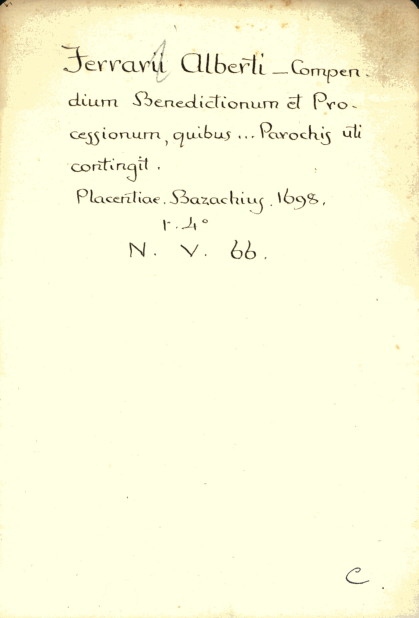 Ferrarii Alberti – Compen-
dium Benedictionum et Pro-
cessionum, quibus ... Parochis uti
contingit.
Placentiae. Bazachius. 1698.
r. 4°
N. V. 66.
C.